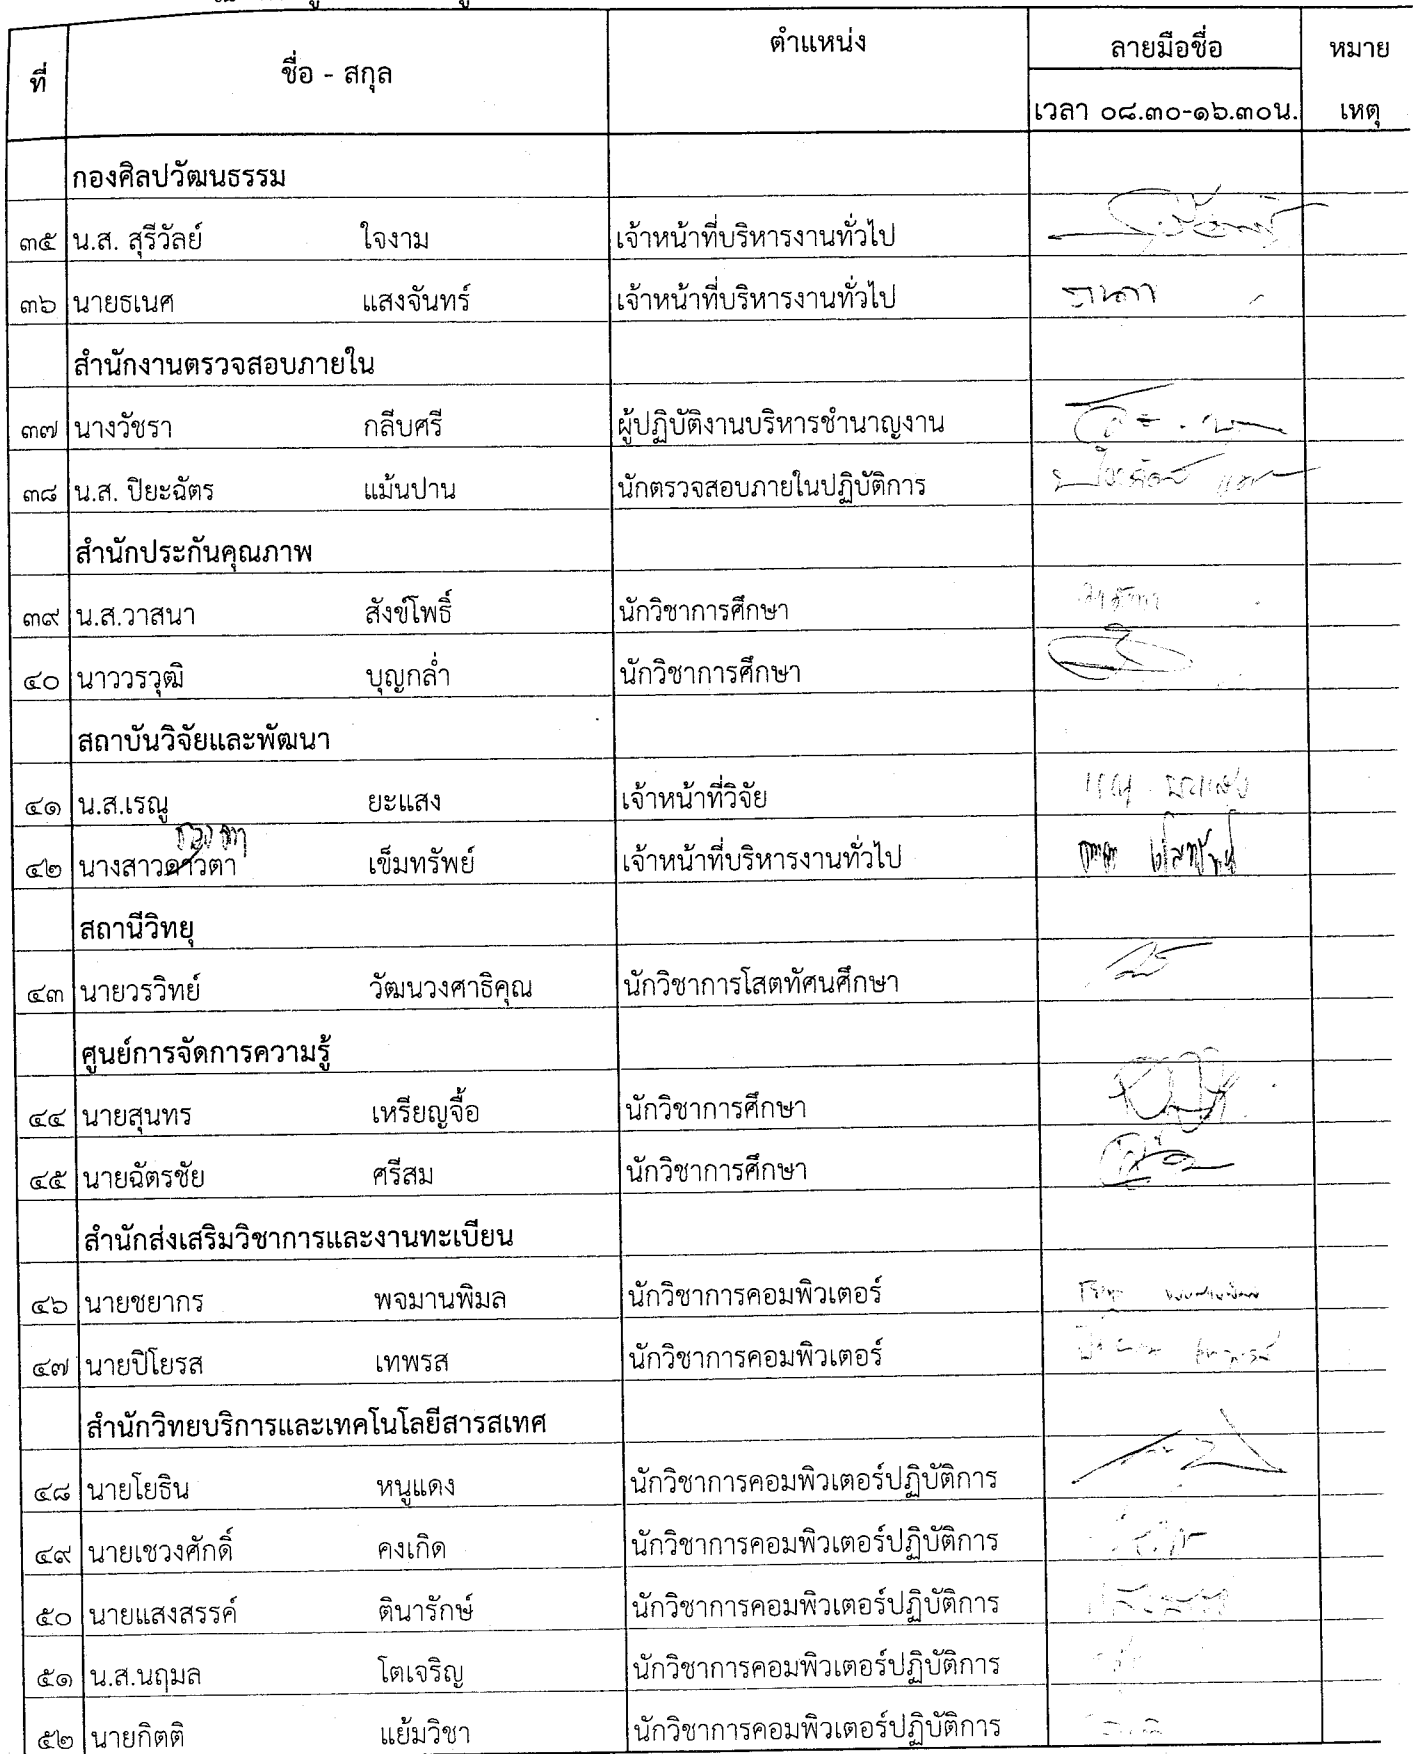 ที่ ชื่อ - สกุล ตำแหน่ง ลายมือชื่อ หมาย
เวลา ๐๘.๓๐-๑๖.๓๐น. เหตุ
กองศิลปวัฒนธรรม
๓๕ น.ส. สุรีวัลย์ ใจงาม เจ้าหน้าที่บริหารงานทั่วไป
๓๖ นายธเนศ แสงจันทร์ เจ้าหน้าที่บริหารงานทั่วไป
สำนักงานตรวจสอบภายใน
๓๗ นางวัชรา กลีบศรี ผู้ปฏิบัติงานบริหารชำนาญงาน
๓๘ น.ส. ปิยะฉัตร แม้นปาน นักตรวจสอบภายในปฏิบัติการ
สำนักประกันคุณภาพ
๓๙ น.ส.วาสนา สังข์โพธิ์ นักวิชาการศึกษา
๔๐ นาววรวุฒิ บุญกล่ำ นักวิชาการศึกษา
สถาบันวิจัยและพัฒนา
๔๑ น.ส.เรณู ยะแสง เจ้าหน้าที่วิจัย
๔๒ นางสาวดาวิตา เข็มทรัพย์ เจ้าหน้าที่บริหารงานทั่วไป
สถานีวิทยุ
๔๓ นายวรวิทย์ วัฒนวงศาธิคุณ นักวิชาการโสตทัศนศึกษา
ศูนย์การจัดการความรู้
๔๔ นายสุนทร เหรียญจื้อ นักวิชาการศึกษา
๔๕ นายฉัตรชัย ศรีสม นักวิชาการศึกษา
สำนักส่งเสริมวิชาการและงานทะเบียน
๔๖ นายชยากร พจมานพิมล นักวิชาการคอมพิวเตอร์
๔๗ นายปิโยรส เทพรส นักวิชาการคอมพิวเตอร์
สำนักวิทยบริการและเทคโนโลยีสารสเทศ
๔๘ นายโยธิน หนูแดง นักวิชาการคอมพิวเตอร์ปฏิบัติการ
๔๙ นายเชวงศักดิ์ คงเกิด นักวิชาการคอมพิวเตอร์ปฏิบัติการ
๕๐ นายแสงสรรค์ ตินารักษ์ นักวิชาการคอมพิวเตอร์ปฏิบัติการ
๕๑ น.ส.นฤมล โตเจริญ นักวิชาการคอมพิวเตอร์ปฏิบัติการ
๕๒ นายกิตติ แย้มวิชา นักวิชาการคอมพิวเตอร์ปฏิบัติการ